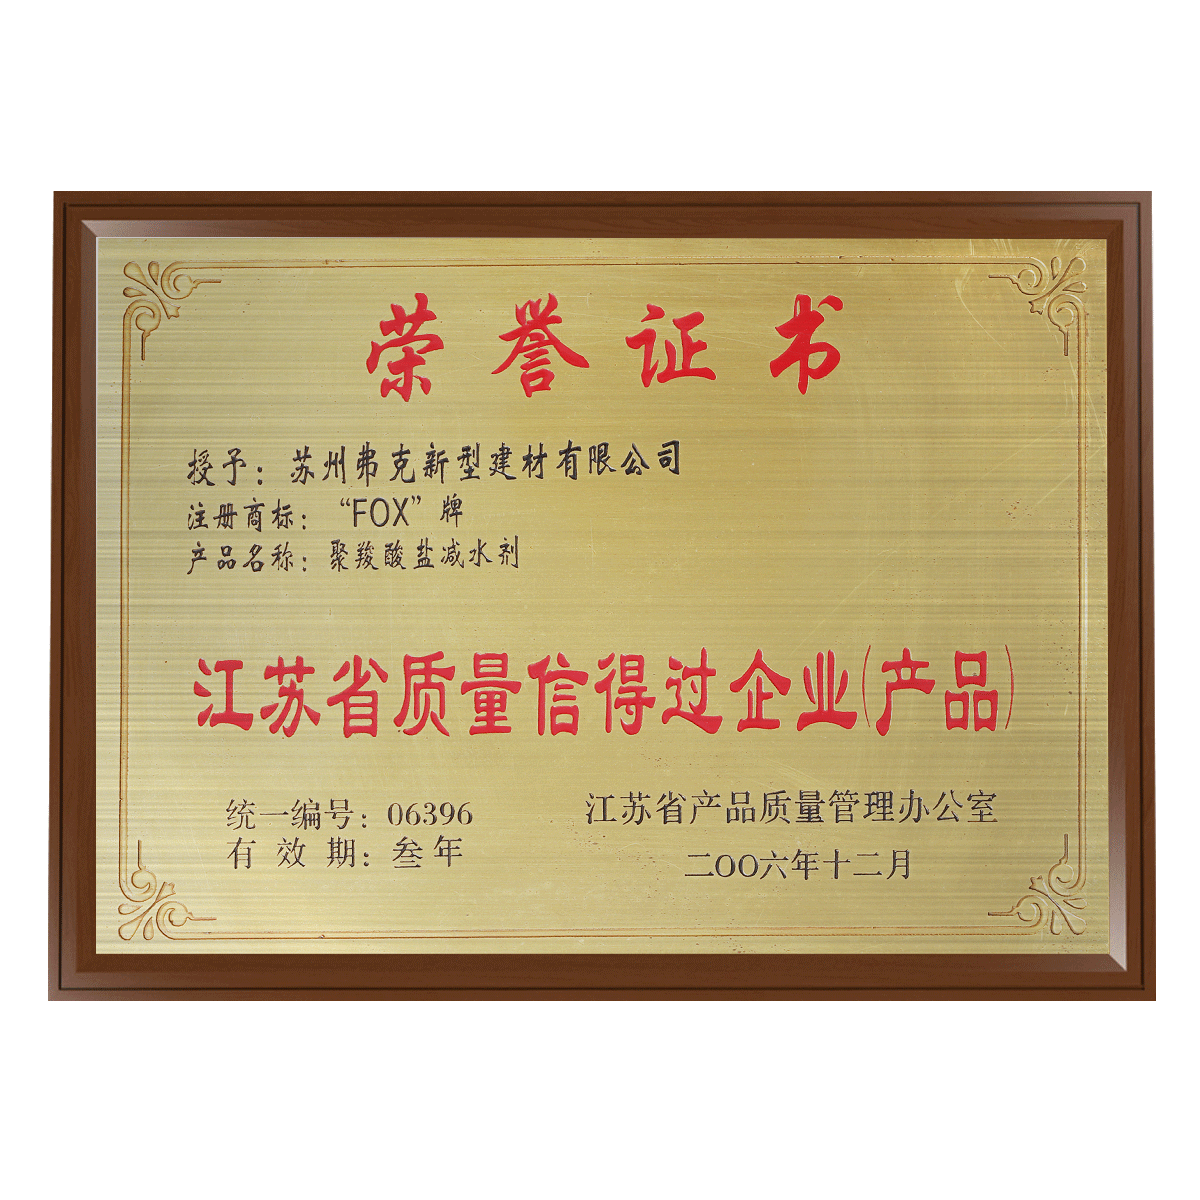 荣誉证书
授予：苏州弗克新型建材有限公司
注册商标：“FOX”牌
产品名称：聚羧酸盐减水剂
江苏省质量信得过企业(产品)
统一编号：06396
有效期：叁年
江苏省产品质量管理办公室
二OO六年十二月